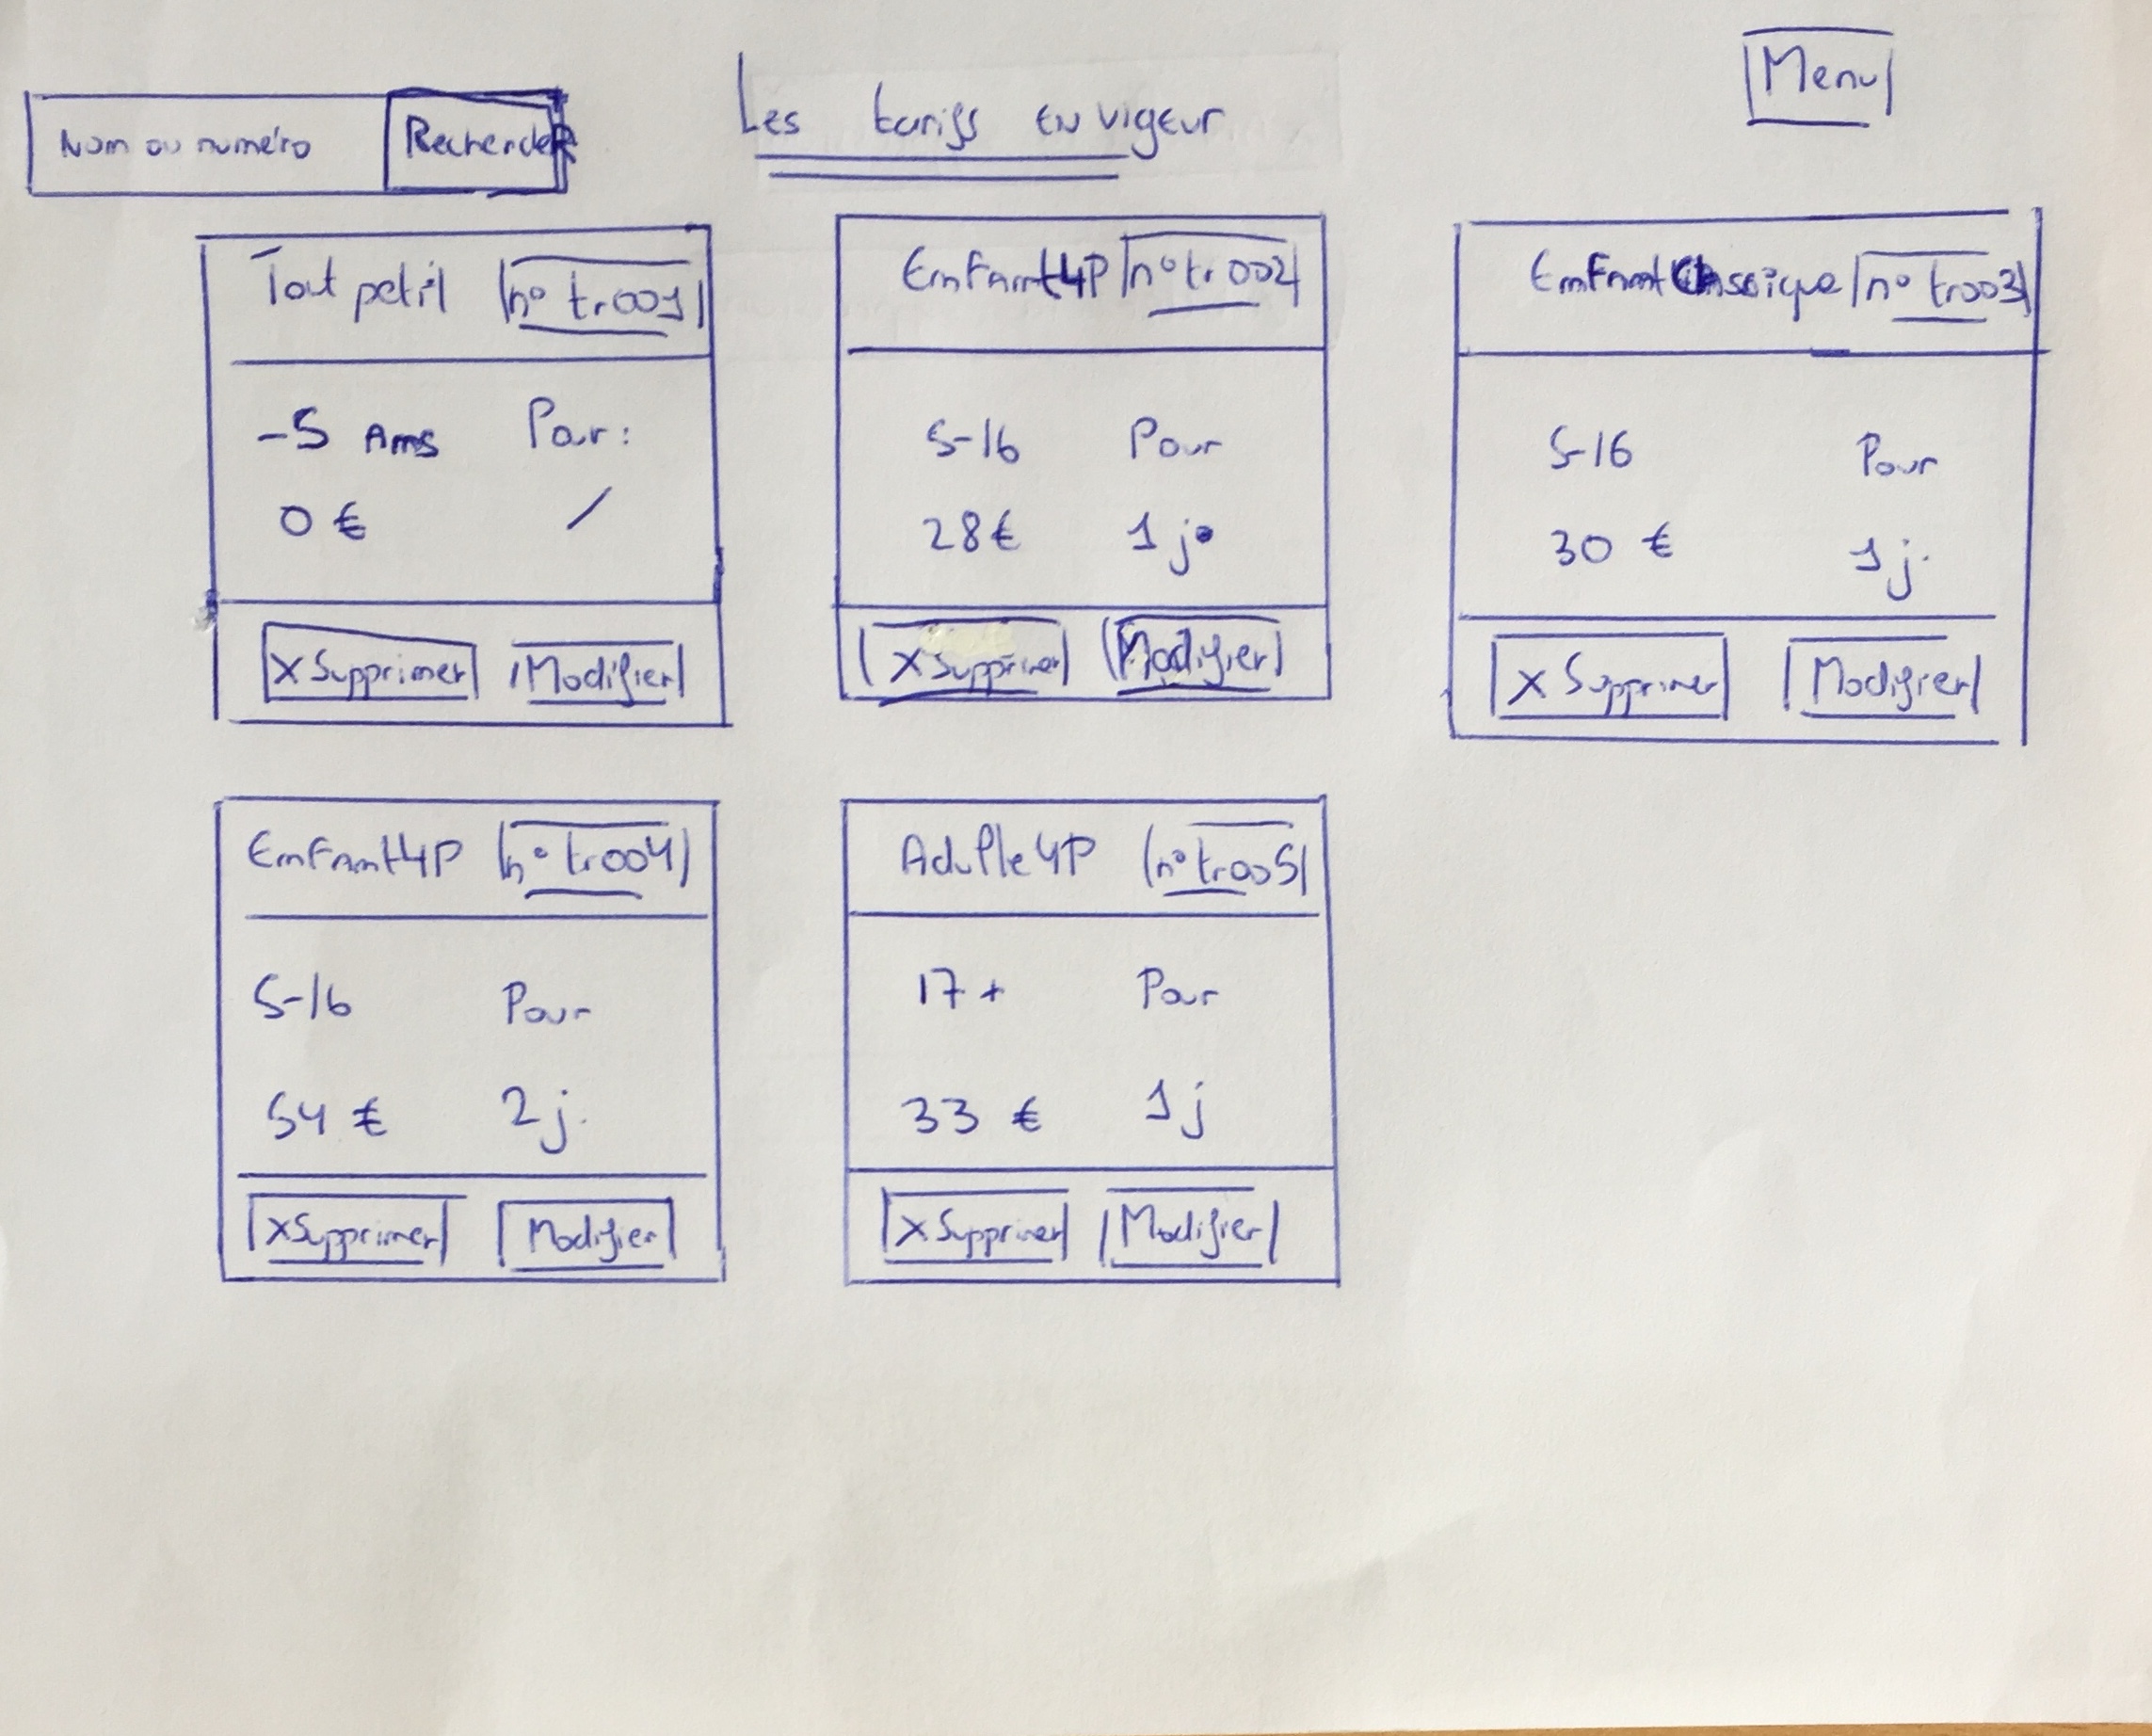 Menu
Nom ou numéro Rechercher
Les tarifs en vigeur
Tout petit n° tr001
-5 Ans Pour :
0 € /
X Supprimer Modifier
Enfant 4P n° tr002
5-16 Pour
28€ 1 j.
X Supprimer Modifier
Enfant Classique n° tr003
5-16 Pour
30 € 1 j.
X Supprimer Modifier
Enfant 4P n° tr004
5-16 Pour
54 € 2 j.
X Supprimer Modifier
Adulte 4P n° tr005
17 + Pour
33 € 1 j
X Supprimer Modifier